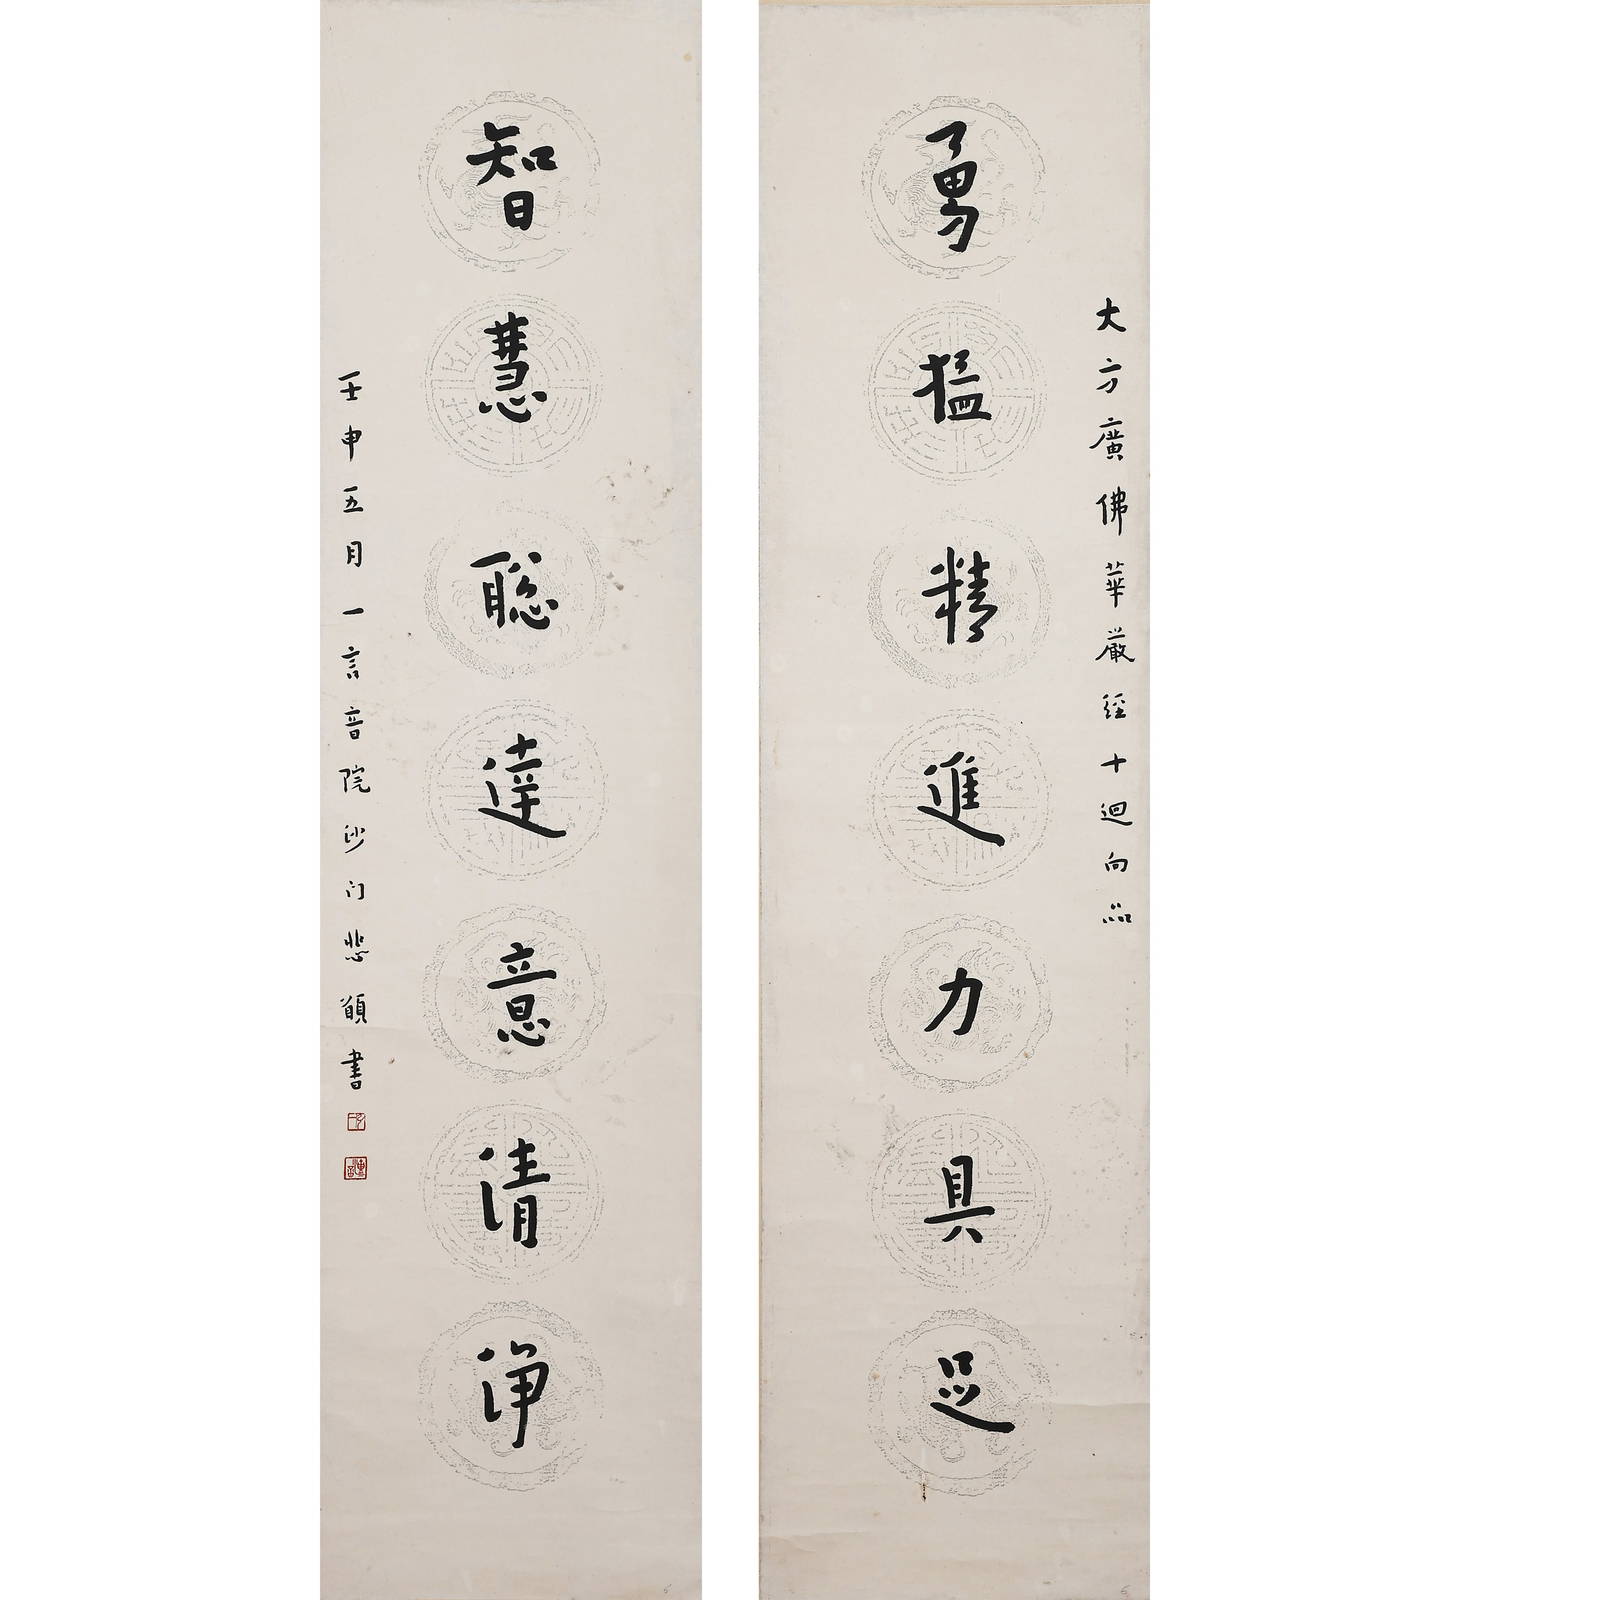 大方廣佛華嚴經十迴向品
勇猛精進力具足
智慧聰達意清淨
壬申五月一言音院沙门悲願書